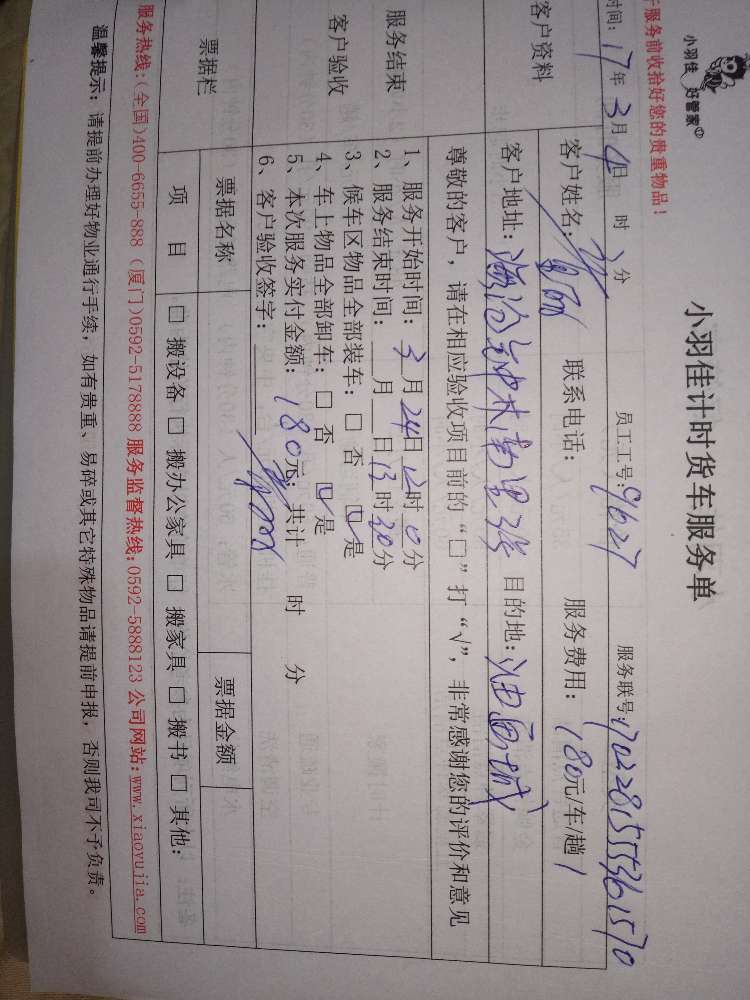 小羽佳 好管家
小羽佳计时货车服务单
服务前收拾好您的贵重物品！
时间：17年3月4日 时 分 员工工号：9627 服务联号：1702281555361570
客户资料
客户姓名： 联系电话： 服务费用：180元/车/趟 1
客户地址：海沧 南里 目的地：油画城
服务结束
客户验收
尊敬的客户，请在相应验收项目前的“□”打“√”，非常感谢您的评价和意见
1、服务开始时间：3月24日12时0分
2、服务结束时间： 月 日13时20分
3、候车区物品全部装车：□ 否 ☑ 是
4、车上物品全部卸车：□ 否 ☑ 是
5、本次服务实付金额：180元；共计 时 分
6、客户验收签字：
票据栏
票据名称 票据金额
项 目 □ 搬设备 □ 搬办公家具 □ 搬家具 □ 搬书 □ 其他：
服务热线：(全国)400-6655-888 (厦门)0592-5178888 服务监督热线：0592-5888123 公司网站：www.xiaoyujia.com
温馨提示：请提前办理好物业通行手续，如有贵重、易碎或其它特殊物品请提前申报，否则我司不予负责。